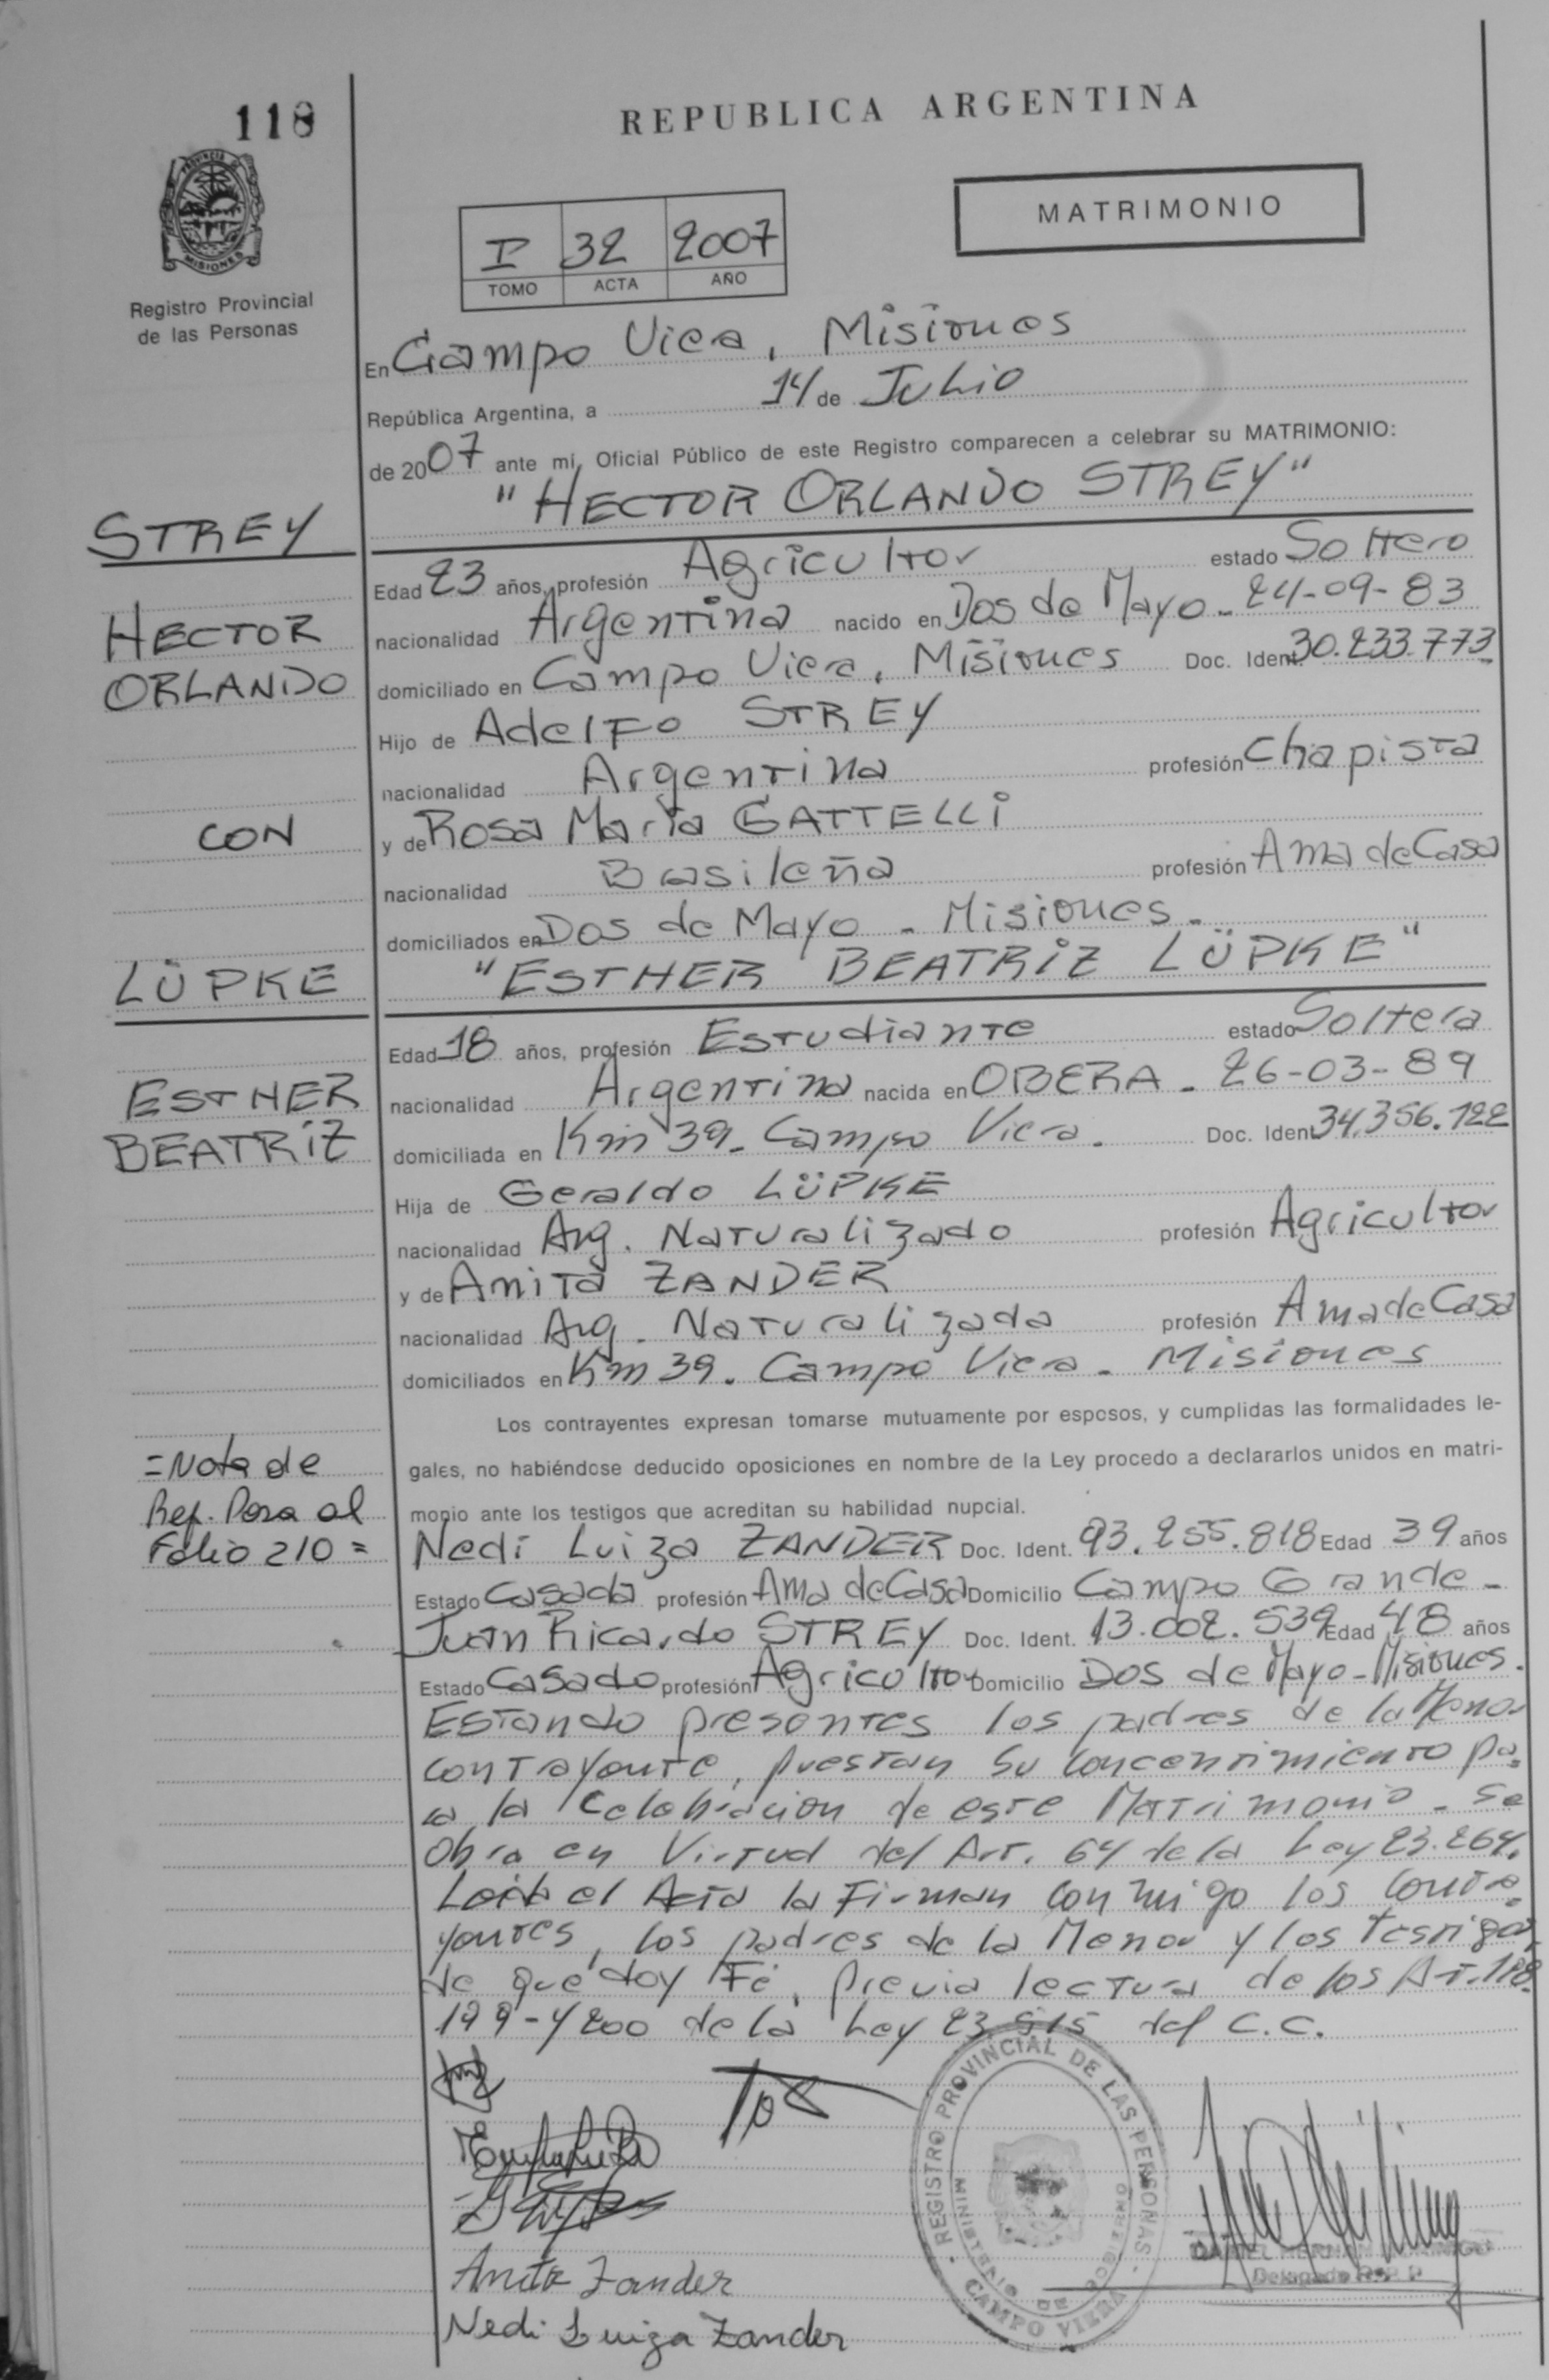 118
REPUBLICA ARGENTINA
PROVINCIA DE
MISIONES
Registro Provincial
de las Personas
MATRIMONIO
I 32 2007
TOMO ACTA AÑO
En Campo Viera, Misiones
República Argentina, a 14 de Julio
de 2007 ante mí, Oficial Público de este Registro comparecen a celebrar su MATRIMONIO:
"HECTOR ORLANDO STREY"
STREY
HECTOR
ORLANDO
CON
LÜPKE
ESTHER
BEATRIZ
Edad 23 años, profesión Agricultor estado Soltero
nacionalidad Argentina nacido en Dos de Mayo - 24-09-83
domiciliado en Campo Viera, Misiones Doc. Ident. 30.233.773
Hijo de Adelfo STREY
nacionalidad Argentina profesión Chapista
y de Rosa María GATTELLI
nacionalidad Brasileña profesión Ama de Casa
domiciliados en Dos de Mayo - Misiones.
"ESTHER BEATRIZ LÜPKE"
Edad 18 años, profesión Estudiante estado Soltera
nacionalidad Argentina nacida en OBERA - 26-03-89
domiciliada en Km 39 - Campo Viera. Doc. Ident. 34.356.122
Hija de Geraldo LÜPKE
nacionalidad Arg. Naturalizado profesión Agricultor
y de Anita ZANDER
nacionalidad Arg. Naturalizada profesión Ama de Casa
domiciliados en Km 39. Campo Viera - Misiones
Los contrayentes expresan tomarse mutuamente por esposos, y cumplidas las formalidades le-
gales, no habiéndose deducido oposiciones en nombre de la Ley procedo a declararlos unidos en matri-
monio ante los testigos que acreditan su habilidad nupcial.
=Nota de
Ref. Pasa al
Folio 210=
Nedi Luiza ZANDER Doc. Ident. 93.255.818 Edad 39 años
Estado Casada profesión Ama de Casa Domicilio Campo Grande -
Juan Ricardo STREY Doc. Ident. 13.002.539 Edad 48 años
Estado Casado profesión Agricultor Domicilio Dos de Mayo - Misiones.
Estando presentes los padres de la Menor
contrayente, prestan su concentimiento pa=
ra la Celebración de este Matrimonio - Se
obra en Virtud del Art. 64 de la Ley 23.264.
Leída el Acta la Firman conmigo los contra=
yentes, los padres de la Menor y los testigos,
de que doy Fé, previa lectura de los Art. 198
199 - y 200 de la Ley 23.515 del C.C.
REGISTRO PROVINCIAL DE LAS PERSONAS
MINISTERIO DE GOBIERNO
CAMPO VIERA
Anita Zander
Nedi Luiza Zander